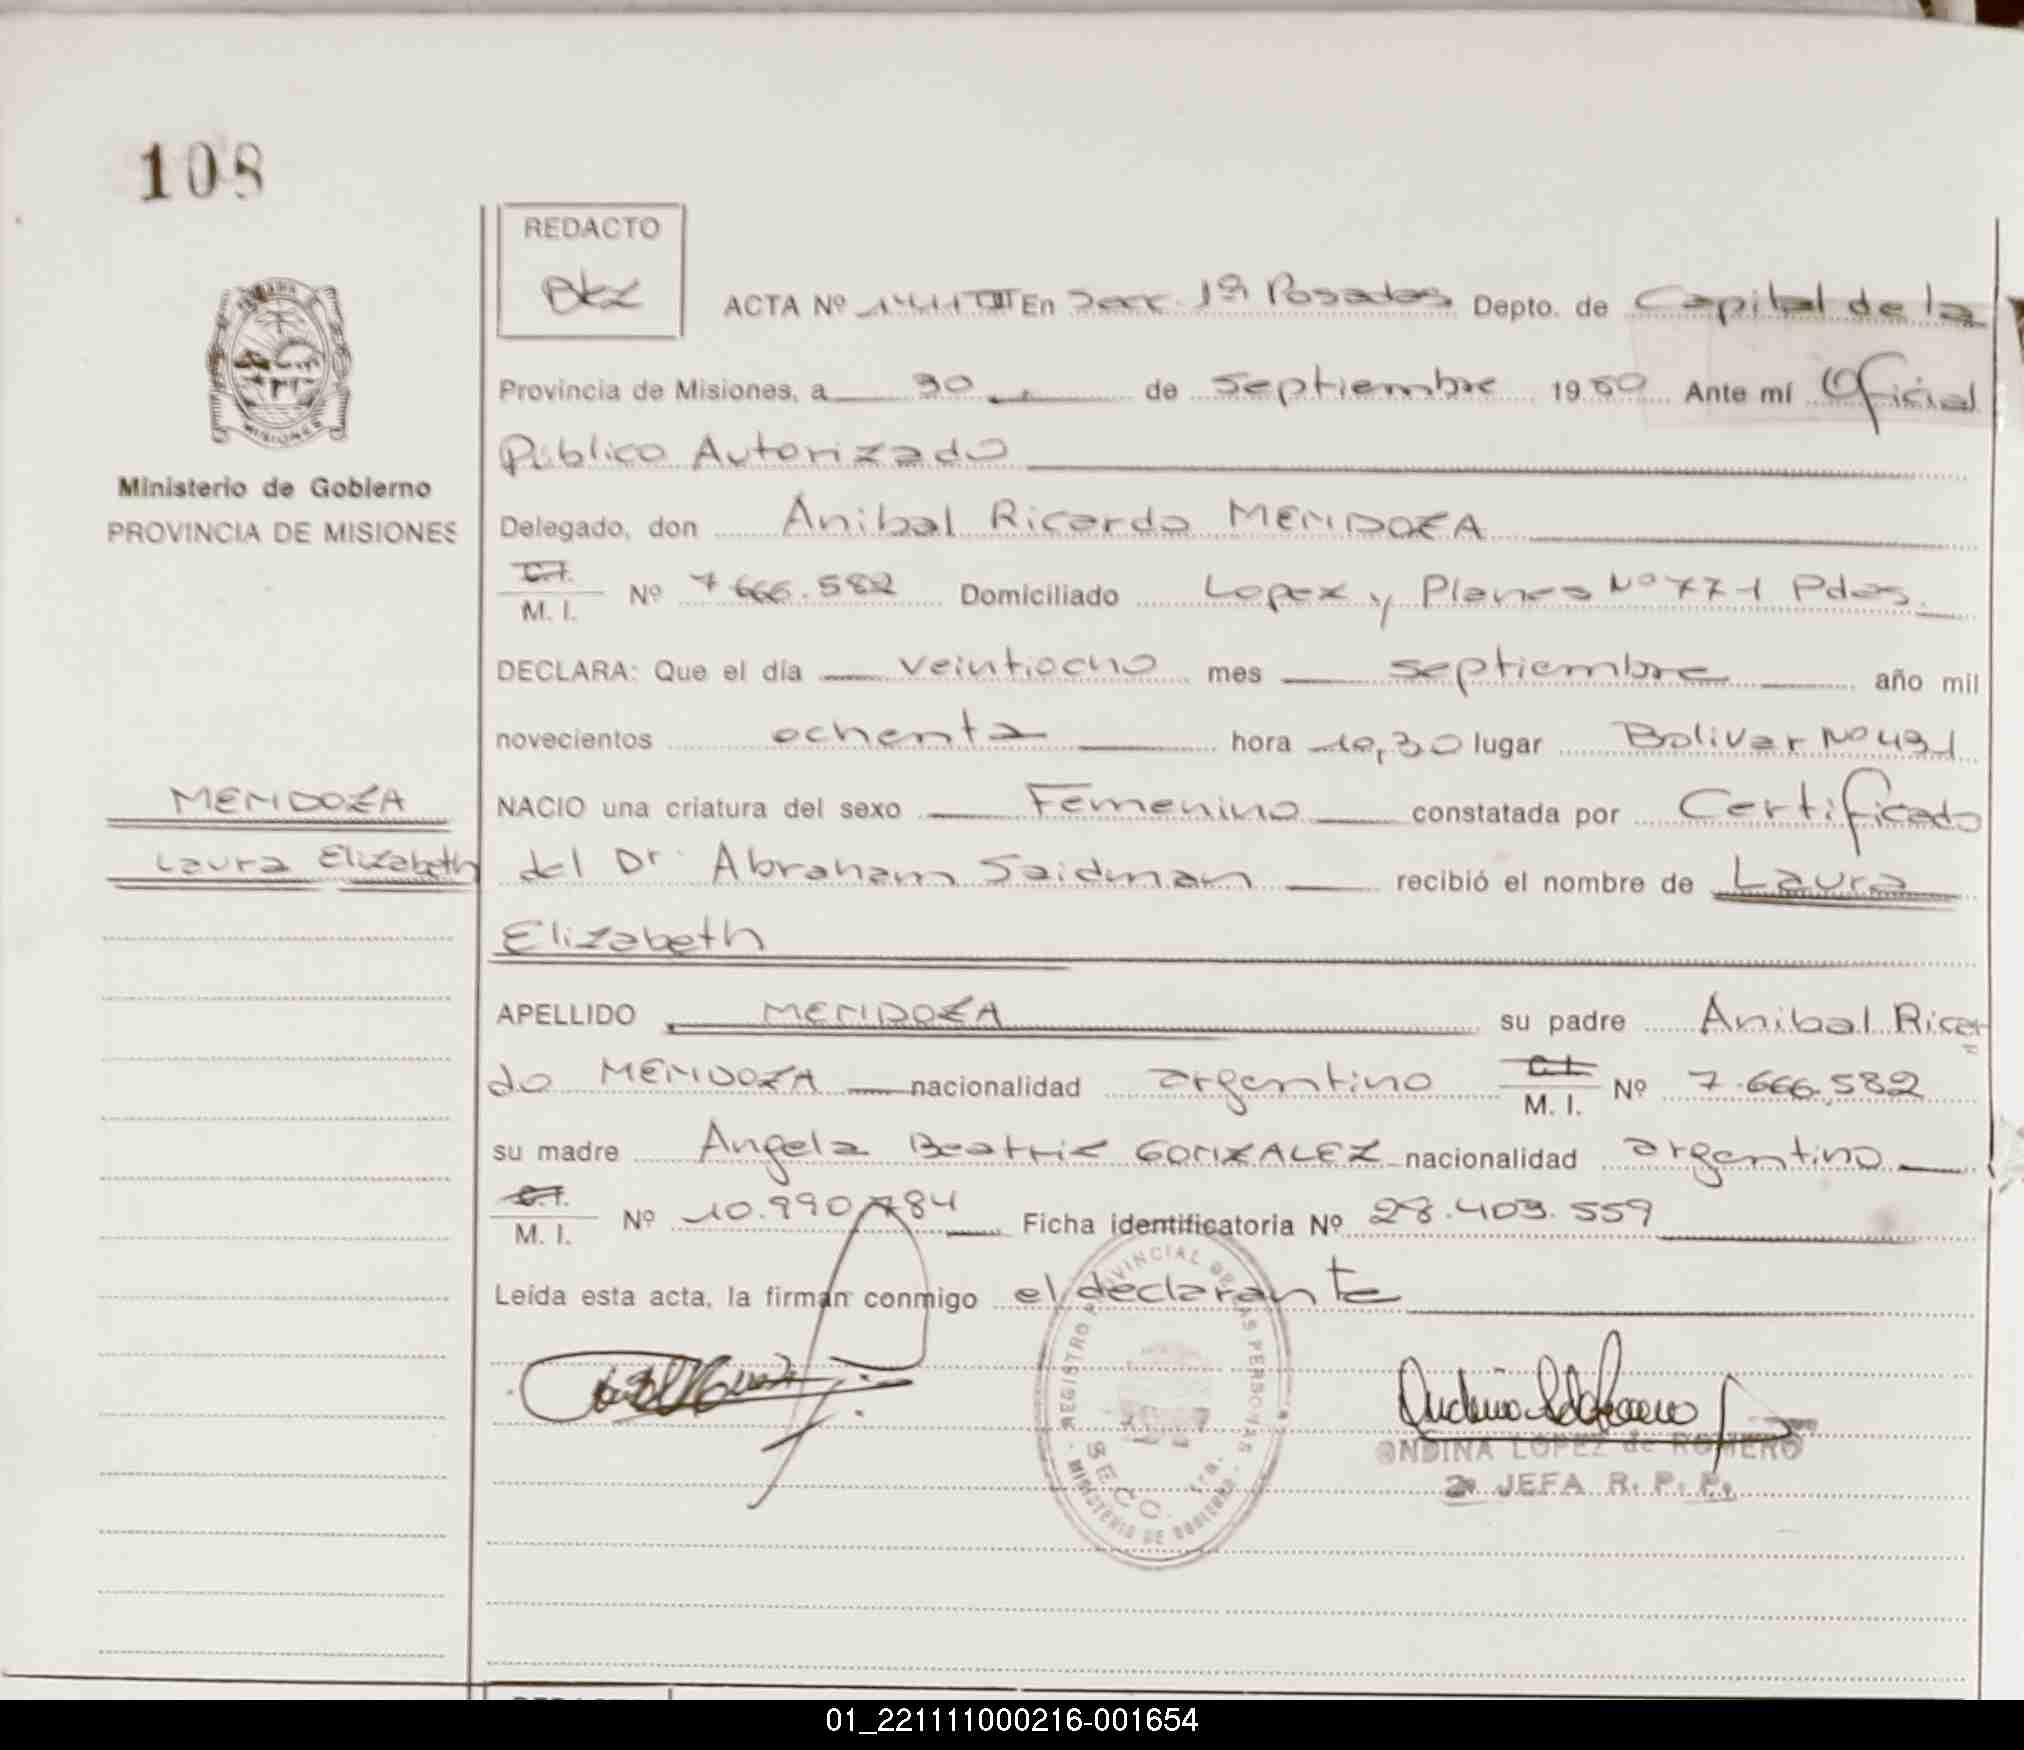 108
REDACTO
ACTA Nº 1411 III En Secc. 1ª Posadas Depto. de Capital de la
Provincia de Misiones, a 30 de septiembre 1980 Ante mí Oficial
Público Autorizado
Ministerio de Gobierno
PROVINCIA DE MISIONES
Delegado, don Anibal Ricardo MENDOZA
C.I.
M. I. Nº 7.666.582 Domiciliado Lopez y Planes Nº 771 Pdas.
DECLARA: Que el día veintiocho mes septiembre año mil
novecientos ochenta hora 10,30 lugar Bolivar Nº 491
MENDOZA
Laura Elizabeth
NACIO una criatura del sexo Femenino constatada por Certificado
del Dr. Abraham Saidman recibió el nombre de Laura
Elizabeth
APELLIDO MENDOZA su padre Anibal Ricar
do MENDOZA nacionalidad argentino C.I. M. I. Nº 7.666.582
su madre Angela Beatriz GONZALEZ nacionalidad argentino
C.I.
M. I. Nº 10.990.784 Ficha identificatoria Nº 28.403.559
Leída esta acta, la firman conmigo el declarante
REGISTRO PROVINCIAL DE LAS PERSONAS
SECC. 1ra.
MINISTERIO DE GOBIERNO
ONDINA LOPEZ de ROMERO
2ª JEFA R. P. P.
01_221111000216-001654